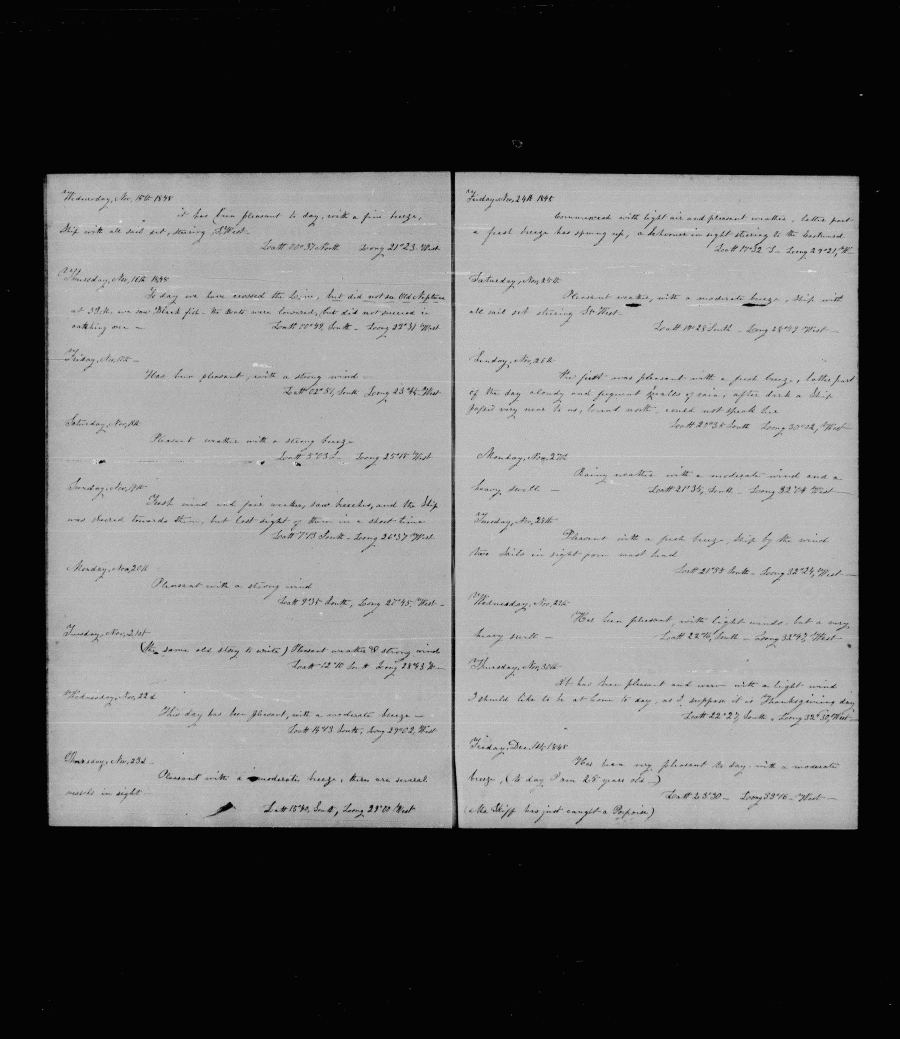 Wednesday, Nov, 15th 1848
it has been pleasant to day, with a fine breeze,
Ship with all sail set, stering S West-
Latt 00°37 North Long 21°23 West
Thursday, Nov, 16th 1848
To day we have crossed the Line, but did not see Old Neptune
at 3 P.M. we saw Black fish- the boats were lowered, but did not succeed in
catching one — Latt 00°49 South - Long 22°31 West
Friday, Nov, 17th —
Has been pleasant, with a strong wind —
Latt 02°51, South Long 23°44 West
Saturday, Nov, 18th
Pleasant weather with a strong breeze
Latt 5°03 S- Long 25°15 West
Sunday, Nov, 19th
Fresh wind and fair weather, saw breeches, and the Ship
was steered towards them, but lost sight of them in a short time
Latt 7°13 South - Long 26°37 West
Monday, Nov, 20th
Pleasant with a strong wind
Latt 9°35 South, Long 27°45, West -
Tuesday, Nov, 21st
(the same old story to write) Pleasant weather & strong wind
Latt 12°10 South Long 28°43 W-
Wednesday, Nov, 22d
This day has been pleasant, with a moderate breeze —
Latt 14°13 South, Long 29°02, West
Thursday, Nov, 23d
Pleasant with a moderate breeze, there are several
vessels in sight
Latt 15°50, South, Long 29°00 West
Friday, Nov, 24th 1848
Commenced with light air and pleasant weather, latter part
a fresh breeze has sprung up, a Schooner in sight stering to the Eastward
Latt 17°32 S- Long 29°21, W-
Saturday, Nov, 25th
Pleasant weather, with a moderate breeze, Ship with
all sail set stering West-
Latt 19°28 South - Long 28°49 West —
Sunday, Nov, 26th
The first was pleasant with a fresh breeze, latter part
of the day cloudy and frequent squalls of rain, after dark a Ship
passed very near to us, bound north, could not speak her
Latt 21°35 South Long 30°02, West-
Monday, Nov, 27th
Rainy weather with a moderate wind and a
heavy swell — Latt 21°34, South - Long 32°04 West —
Tuesday, Nov, 28th
Pleasant with a fresh breeze, Ship by the wind
two sails in sight from mast head
Latt 21°58 South - Long 32°34, West —
Wednesday, Nov, 29th
Has been pleasant, with light winds, but a very
heavy swell — Latt 22°16, South - Long 32°47, West —
Thursday, Nov, 30th
It has been pleasant and warm with a light wind
I should like to be at home to day, as I suppose it is Thanksgiving day
Latt 22°27, South, Long 32°50, West-
Friday, Dec, 1st, 1848
Has been very pleasant to day, with a moderate
breeze, (to day I am 25 years old -)
Latt 23°30 - Long 33°16 - West —
(Mr Skiff has just caught a Porpoise)